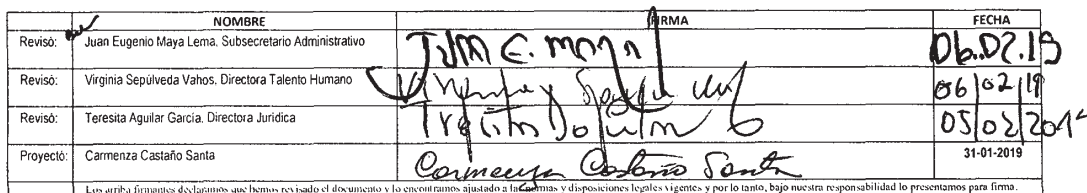 NOMBRE FIRMA FECHA
Revisó: Juan Eugenio Maya Lema. Subsecretario Administrativo Juan E. Maya 06.02.19
Revisó: Virginia Sepúlveda Vahos. Directora Talento Humano 06/02/19
Revisó: Teresita Aguilar García. Directora Jurídica 05/02/201
Proyectó: Carmenza Castaño Santa Carmenza Castaño Santa 31-01-2019
Los arriba firmantes declaramos que hemos revisado el documento y lo encontramos ajustado a las normas y disposiciones legales vigentes y por lo tanto, bajo nuestra responsabilidad lo presentamos para firma.